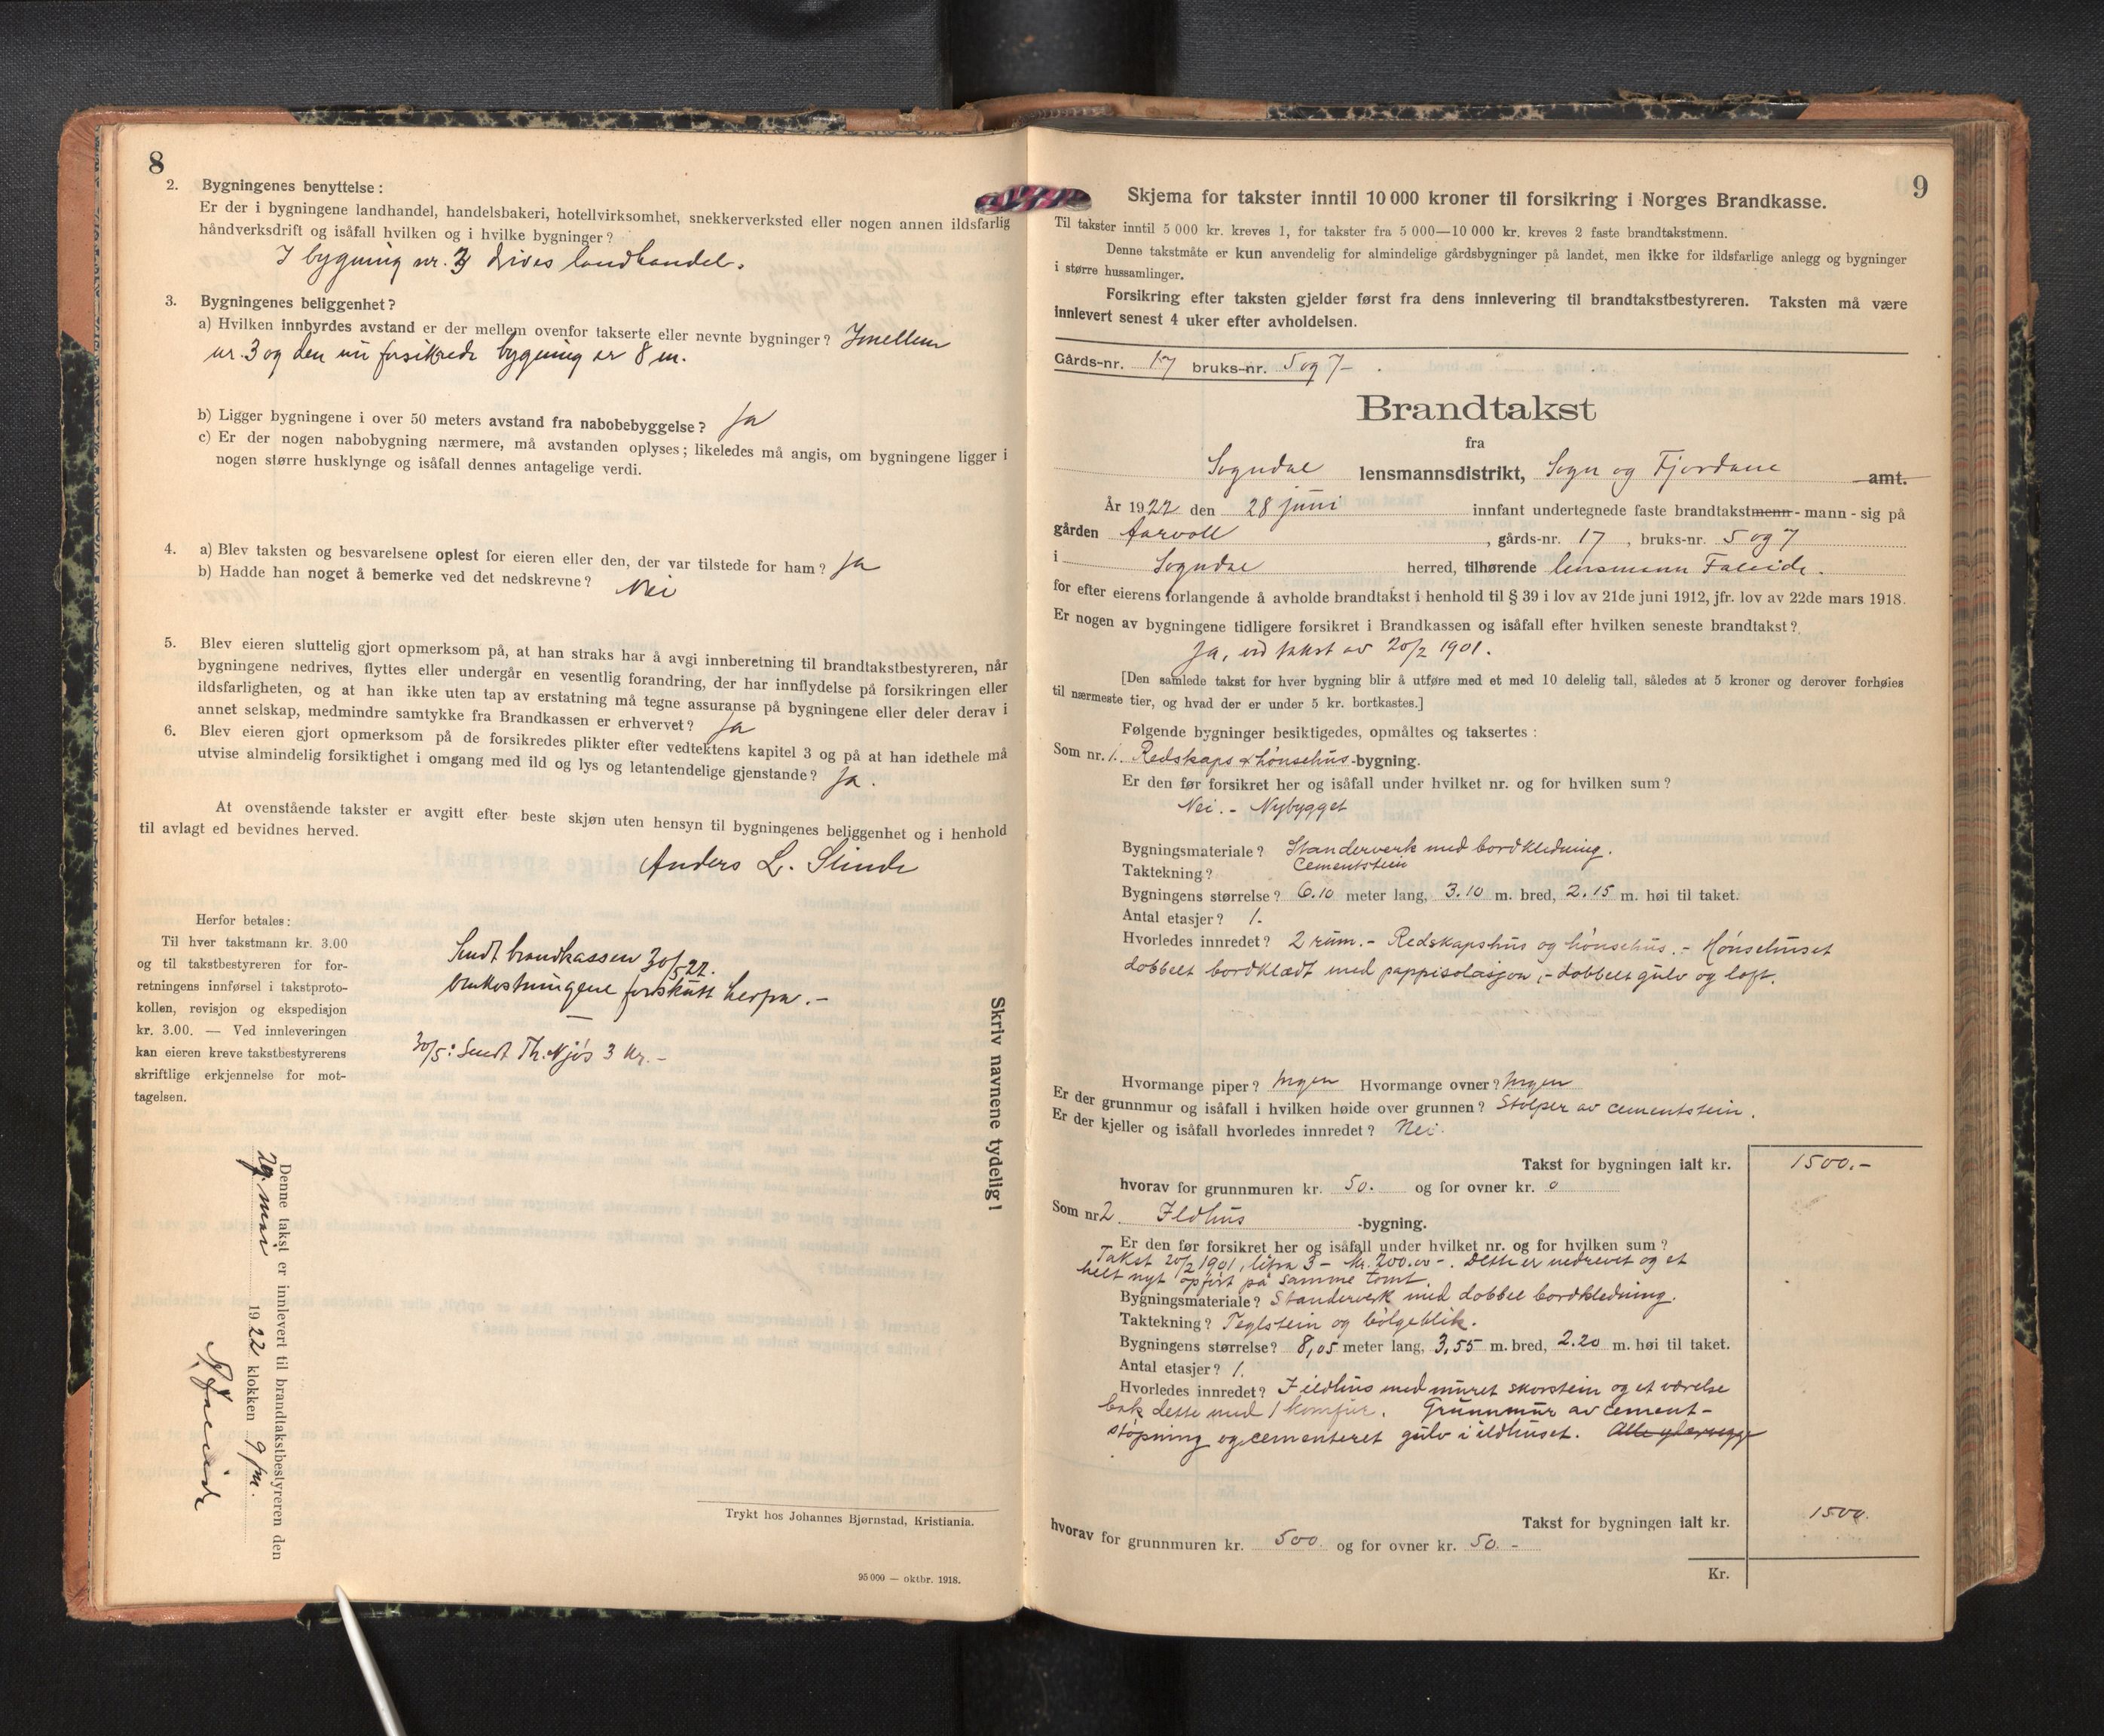 8
2. Bygningenes benyttelse:
Er der i bygningene landhandel, handelsbakeri, hotellvirksomhet, snekkerverksted eller nogen annen ildsfarlig
håndverksdrift og isåfall hvilken og i hvilke bygninger?
I bygning nr. 3 drives landhandel.
3. Bygningenes beliggenhet?
a) Hvilken innbyrdes avstand er der mellem ovenfor takserte eller nevnte bygninger? Imellem
nr. 3 og den nu forsikrede bygning er 8 m.
b) Ligger bygningene i over 50 meters avstand fra nabobebyggelse? Ja
c) Er der nogen nabobygning nærmere, må avstanden oplyses; likeledes må angis, om bygningene ligger i
nogen større husklynge og isåfall dennes antagelige verdi.
4. a) Blev taksten og besvarelsene oplest for eieren eller den, der var tilstede for ham? Ja
b) Hadde han noget å bemerke ved det nedskrevne? Nei
5. Blev eieren sluttelig gjort opmerksom på, at han straks har å avgi innberetning til brandtakstbestyreren, når
bygningene nedrives, flyttes eller undergår en vesentlig forandring, der har innflydelse på forsikringen eller
ildsfarligheten, og at han ikke uten tap av erstatning må tegne assuranse på bygningene eller deler derav i
annet selskap, medmindre samtykke fra Brandkassen er erhvervet? Ja
6. Blev eieren gjort opmerksom på de forsikredes plikter efter vedtektens kapitel 3 og på at han idethele må
utvise almindelig forsiktighet i omgang med ild og lys og letantendelige gjenstande? Ja.
At ovenstående takster er avgitt efter beste skjøn uten hensyn til bygningenes beliggenhet og i henhold
til avlagt ed bevidnes herved.
Anders L. Slinde
Herfor betales:
Til hver takstmann kr. 3.00
og til takstbestyreren for for-
retningens innførsel i takstproto-
kollen, revisjon og ekspedisjon
kr. 3.00. — Ved innleveringen
kan eieren kreve takstbestyrerens
skriftlige erkjennelse for mot-
tagelsen.
Sendt brandkassen 30/5 22.
Omkostningene forskutt herfra. -
30/5: Sendt Th. Njøs 3 kr. -
Skriv navnene tydelig!
Denne takst er innlevert til brandtakstbestyreren den
29. mai 1922 klokken 9 fm.
Faleide
Trykt hos Johannes Bjørnstad, Kristiania.
95 000 — oktbr. 1918.
9
Skjema for takster inntil 10 000 kroner til forsikring i Norges Brandkasse.
Til takster inntil 5 000 kr. kreves 1, for takster fra 5 000—10 000 kr. kreves 2 faste brandtakstmenn.
Denne takstmåte er kun anvendelig for almindelige gårdsbygninger på landet, men ikke for ildsfarlige anlegg og bygninger
i større hussamlinger.
Forsikring efter taksten gjelder først fra dens innlevering til brandtakstbestyreren. Taksten må være
innlevert senest 4 uker efter avholdelsen.
Gårds-nr. 17 bruks-nr. 5 og 7
Brandtakst
fra
Sogndal lensmannsdistrikt, Sogn og Fjordane amt.
År 1922 den 28 juni innfant undertegnede faste brandtakstmenn - mann - sig på
gården Aarvoll, gårds-nr. 17, bruks-nr. 5 og 7
i Sogndal herred, tilhørende lensmann Faleide.
for efter eierens forlangende å avholde brandtakst i henhold til § 39 i lov av 21de juni 1912, jfr. lov av 22de mars 1918.
Er nogen av bygningene tidligere forsikret i Brandkassen og isåfall efter hvilken seneste brandtakst?
Ja, ved takst av 20/2 1901.
[Den samlede takst for hver bygning blir å utføre med et med 10 delelig tall, således at 5 kroner og derover forhøies
til nærmeste tier, og hvad der er under 5 kr. bortkastes.]
Følgende bygninger besiktigedes, opmåltes og taksertes:
Som nr. 1. Redskaps & hønsehus-bygning.
Er den før forsikret her og isåfall under hvilket nr. og for hvilken sum?
Nei. - Nybygget
Bygningsmateriale? Standerverk med bordkledning.
Taktekning? Cementstein
Bygningens størrelse? 6.10 meter lang, 3.10 m. bred, 2.15 m. høi til taket.
Antal etasjer? 1.
Hvorledes innredet? 2 rum. - Redskapshus og hønsehus. - Hønsehuset
dobbelt bordklædt med pappisolasjon, - dobbelt gulv og loft.
Hvormange piper? Ingen Hvormange ovner? Ingen
Er der grunnmur og isåfall i hvilken høide over grunnen? Stolper av cementstein.
Er der kjeller og isåfall hvorledes innredet? Nei.
Takst for bygningen ialt kr. 1500.-
hvorav for grunnmuren kr. 50. og for ovner kr. 0
Som nr 2. Ildhus -bygning.
Er den før forsikret her og isåfall under hvilket nr. og for hvilken sum?
Takst 20/2 1901, litra 3 - kr. 200.00 -. Dette er nedrevet og et
helt nyt opført på samme tomt.
Bygningsmateriale? Standerverk med dobbel bordkledning.
Taktekning? Teglstein og bølgeblik.
Bygningens størrelse? 8,05 meter lang, 3,55 m. bred, 2.20 m. høi til taket.
Antal etasjer? 1.
Hvorledes innredet? Ildhus med muret skorstein og et værelse
bak dette med 1 komfur. Grunnmur av cement-
støpning og cementeret gulv i ildhuset.
Takst for bygningen ialt kr. 1500.
hvorav for grunnmuren kr. 500. og for ovner kr. 50. -
Kr.